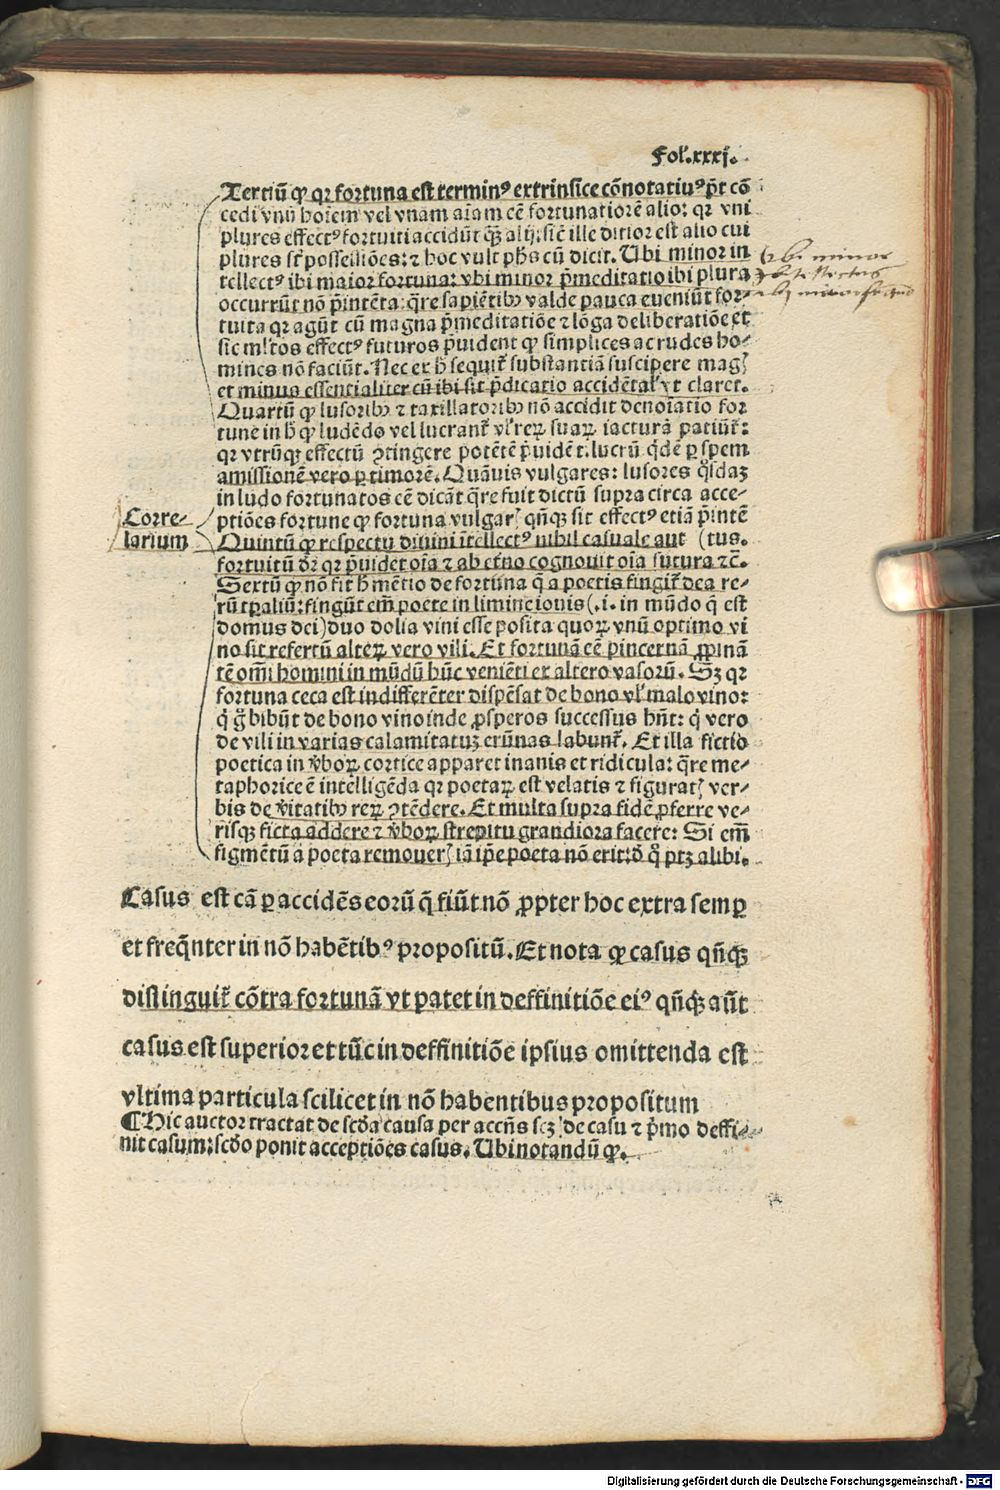 Fol'.xxxj.
Tertiū ꝙ qꝛ fortuna est terminꝰ extrinsice cōnotatiuꝰ p̄t cō
cedi vnū hoīem vel vnam aīam eē fortunatiorē alio: qꝛ vni
plures effectꝰ fortuiti accidūt q̄ꝫ alij: siē ille ditior est alio cui
plures st̄ possessiōes: ⁊ hoc vult ph̄s cū dicit. Ubi minor in
tellectꝰ ibi maior fortuna: vbi minor p̄meditatio ibi plura
occurrūt nō p̄intēta: q̄re sapiētibꝫ valde pauca eueniūt for⸗
tuita qꝛ agūt cū magna p̄meditatiōe ⁊ lōga deliberatiōe et
sic ml'tos effectꝰ futuros p̄uident ꝙ simplices ac rudes ho⸗
mines nō faciūt. Nec ex h̄ sequit᷑ substantiā suscipere magꝭ
et minus essentialiter cū ibi sit p̄dicatio accidētal' vt claret.
Quartū ꝙ lusoribꝫ ⁊ taxillatoribꝫ nō accidit denoīatio for
tune in h̄ ꝙ ludēdo vel lucrant᷑ vl' reꝝ suaꝝ iacturā patiūt᷑:
qꝛ vtrūqꝫ effectū ꝯtingere potētē p̄uidēt: lucrū q̄dē ꝑ spem
amissionē vero ꝑ timorē. Quāuis vulgares: lusores q°sdaꝫ
in ludo fortunatos eē dicāt q̄re fuit dictū supra circa acce⸗
ptiōes fortune ꝙ fortuna vulgarꝭ qn̄qꝫ sit effectꝰ etiā p̄intē
Corre⸗
larium
Quintū ꝙ respectu diuini ītellectꝰ nihil casuale aut (tus.
fortuitū dr̄: qꝛ p̄uidet oīa ⁊ ab et̄no cognouit oīa futura ⁊c̄.
Sextū ꝙ nō fit h̄ mētio de fortuna q̄ a poetis fingit᷑ dea re⸗
rū tp̄aliū: fingūt em̄ poete in limine iouis (.i. in mūdo q̄ est
domus dei) duo dolia vini esse posita quoꝝ vnū optimo vi
no sit refertū alteꝝ vero vili. Et fortunā eē pincernā ꝓpinā
tē om̄i homini in mūdū hūc veniēti ex altero vasorū. Sꝫ qꝛ
fortuna ceca est indifferēter dispēsat de bono vl' malo vino:
q̄ g° bibūt de bono vino inde ꝓsperos successus hn̄t: q̄ vero
de vili in varias calamitatuꝫ erūnas labunt᷑. Et illa fictio
poetica in v̄boꝝ cortice apparet inanis et ridicula: q̄re me⸗
taphorice ē intelligēda qꝛ poetaꝝ est velatis ⁊ figuratꝭ ver⸗
bis de v̄itatibꝫ reꝝ ꝯtēdere. Et multa supra fidē ꝓferre ve⸗
risqꝫ ficta addere ⁊ v̄boꝝ strepitu grandiora facere: Si em̄
figmētū a poeta remouerꝭ iā ip̄e poeta nō erit: vt ptꝫ alibi.
Casus est cā ꝑ accidēs eorū q̄ fiūt nō ꝓpter hoc extra semꝑ
et freq̄nter in nō habētibꝰ propositū. Et nota ꝙ casus qn̄qꝫ
distinguit᷑ cōtra fortunā vt patet in deffinitiōe eiꝰ qn̄qꝫ aūt
casus est superior et tūc in deffinitiōe ipsius omittenda est
vltima particula scilicet in nō habentibus propositum
¶ Hic auctor tractat de scd̄a causa per accn̄s scꝫ de casu ⁊ p̄mo deffi⸗
nit casum: scd̄o ponit acceptiōes casus. Ubi notandū ꝙ.
Ubi minor
Digitalisierung gefördert durch die Deutsche Forschungsgemeinschaft - DFG